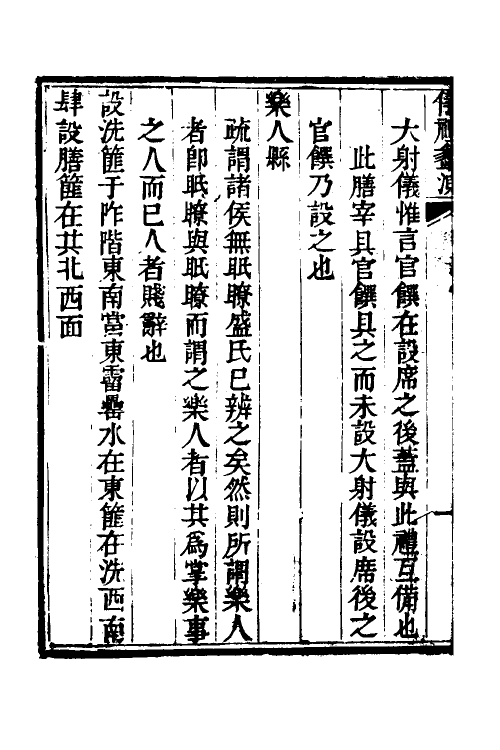 大射儀惟言官饌在設席之後蓋與此禮互備也
此膳宰具官饌具之而未設大射儀設席後之
官饌乃設之也
樂人縣
疏謂諸侯無眡瞭盛氏已辨之矣然則所謂樂人
者卽眡瞭與眡瞭而謂之樂人者以其爲掌樂事
之人而已人者賤辭也
設洗篚于阼階東南當東霤罍水在東篚在洗西南
肆設膳篚在其北西面